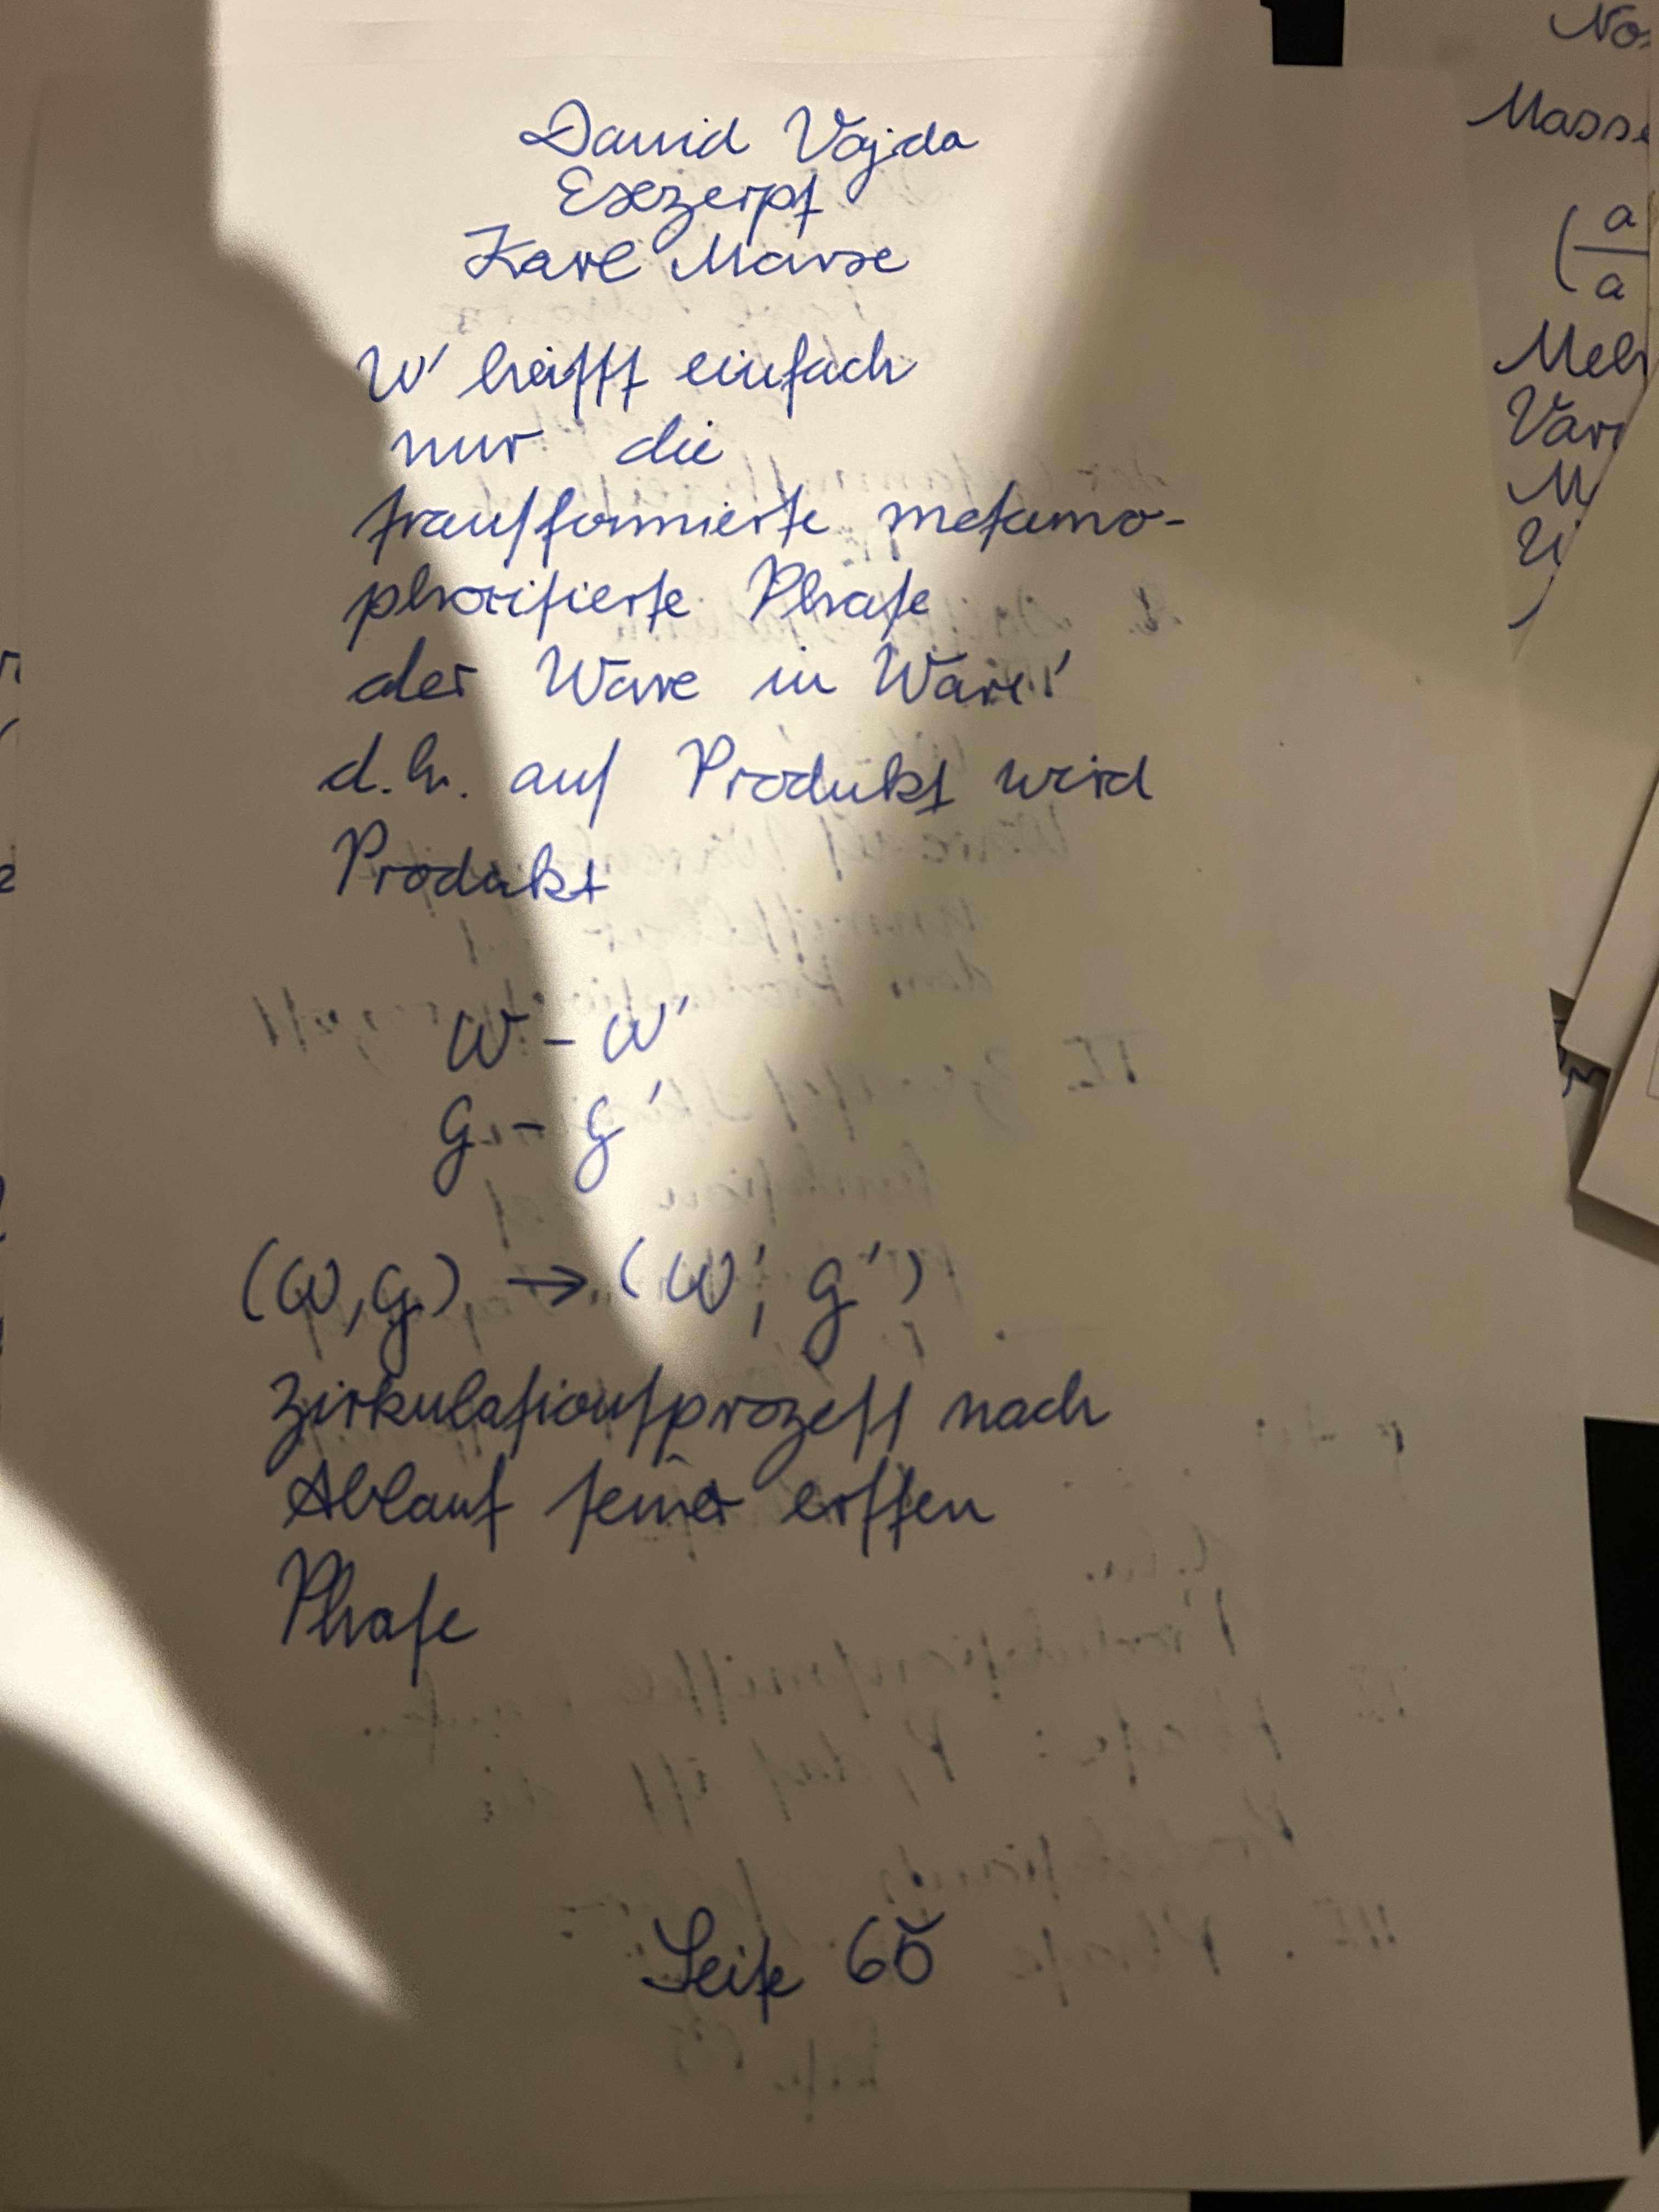 David Vajda
Exzerpt
Karl Marx
W' heißt einfach
nur die
tranſformierte metamo-
phoriſierte Phaſe
der Ware in Ware'
d.h. auſ Produkt wird
Produkt
W - W'
G - G'
(W, G) → (W', G')
Zirkulationſprozeſſ nach
Ablauf ſeiner erſten
Phaſe
Seite 65
No
Masse
(a
a
Meh
Var
M